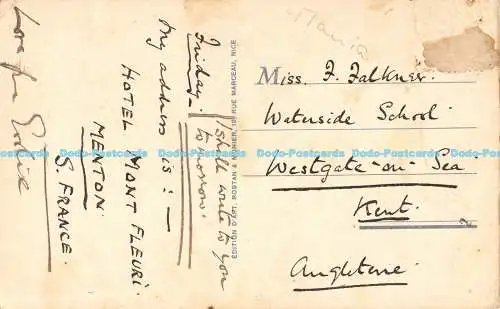 Friday.
My address is: —
HOTEL MONT FLEURI.
MENTON.
S. FRANCE.
I shall write to you
tomorrow.
Love from
EDITION D'ART, ROSTAN & MUNIER, RUE MARCEAU, NICE
Miss. F. Falkner.
Waterside School
Westgate-on-Sea
Kent.
Angleterre.
Dodo-Postcards Dodo-Postcards Dodo-Postcards Dodo-Postcards Dodo-Postcards